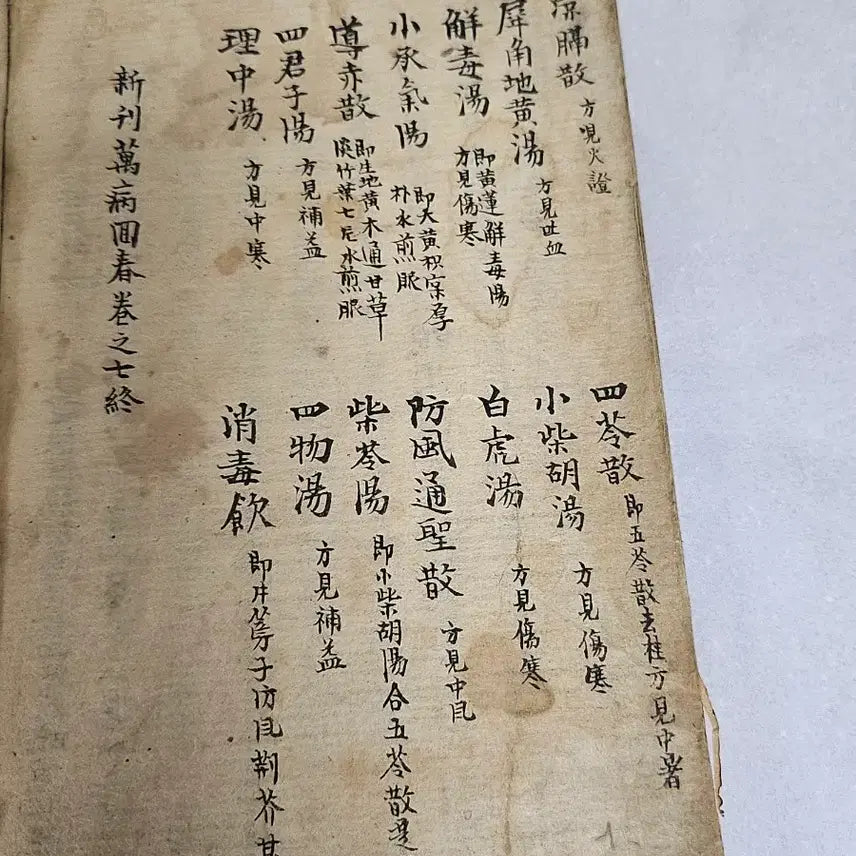 凉膈散 方見火證 四苓散 即五苓散去桂方見中暑
犀角地黄湯 方見吐血 小柴胡湯 方見傷寒
解毒湯 即黄蓮解毒湯 方見傷寒 白虎湯 方見傷寒
小承氣湯 即大黄枳宲厚 朴水煎服 防風通聖散 方見中風
導赤散 即生地黄木通甘草 淡竹葉七片水煎服 柴苓湯 即小柴胡湯合五苓散是
四君子湯 方見補益 四物湯 方見補益
理中湯 方見中寒 消毒飲 即牛蒡子防風荆芥甘
新刊萬病回春卷之七終